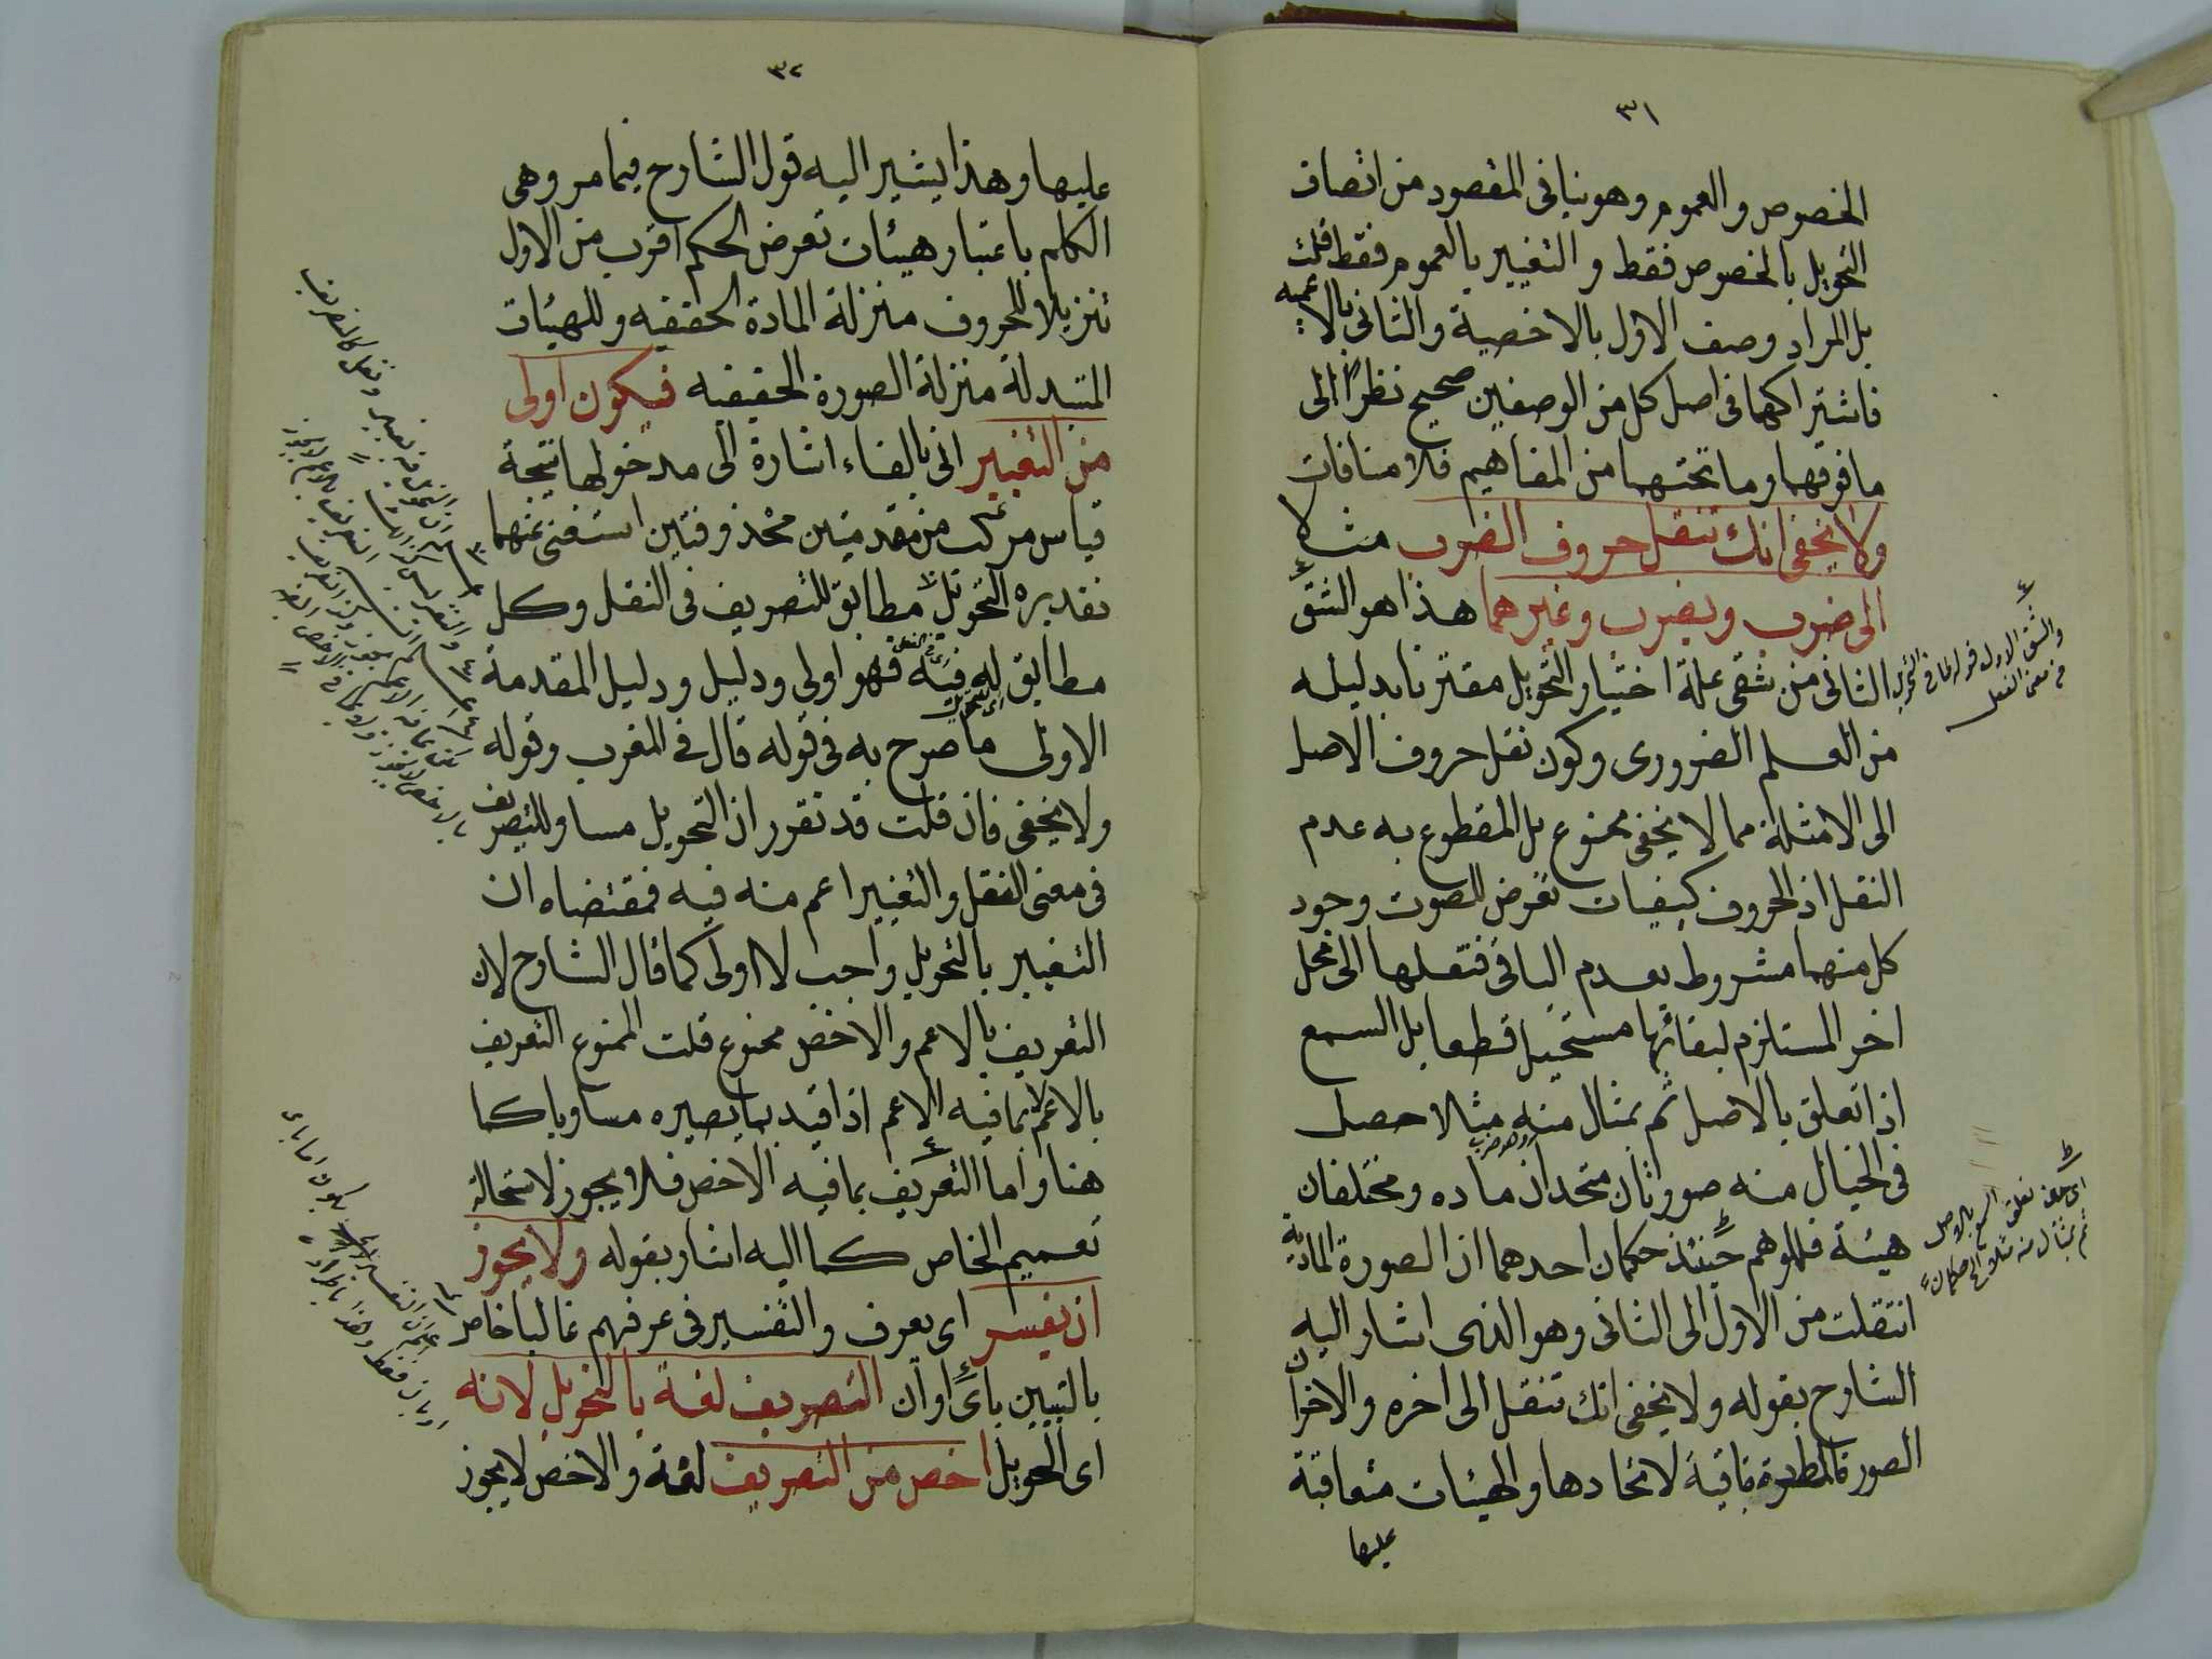 ٣١
الخصوص والعموم وهو ينافى المقصود من اتصاف
التحويل بالخصوص فقط والتغيير بالعموم فقط قلت
بل المراد وصف الاول بالاخصية والثانى بالاعميه
فاشتراكهما فى اصل كل من الوصفين صحيح نظرًا الى
ما فوقهما وما تحتهما من المفاهيم فلا منافات
ولا يخفى انك تنقل حروف الضرب مثلا
الى ضرب ويضرب وغيرهما هذا هو الشق
الثانى من شقى علة اختيار التحويل مقترنا بدليله
من العلم الضرورى وكون نقل حروف الاصل
الى الامثلة مما لا يخفى ممنوع بل المقطوع به عدم
النقل اذ الحروف كيفيات تعرض للصوت وجود
كل منهما مشروط بعدم الباقى فنقلها الى محل
اخر المستلزم لبقائها مستحيل قطعا بل السمع
اذا تعلق بالاصل ثم بمثال منه مثلا حصل
وهو ضرب
فى الخيال منه صورتان متحدتان ماده ومختلفان
هيئة فللوهم حينئذ حكمان احدهما ان الصورة المادية
انتقلت من الاول الى الثانى وهو الذى اشار اليه
الشارح بقوله ولا يخفى انك تنقل الى اخره والاخر ان
الصورة المطلقة باقية لاتحادها والهيئات متعاقبة
عليها
والشق الاول قوله لما فى التحويل
من معنى النقل
اى حين تعلق السمع بالاصل
ثم بمثال منه مثلا الخ حكمان
٣٢
عليها وهذا يشير اليه قول الشارح فيما مر وهى
الكلم باعتبار هيئات تعرض الحكم اقرب من الاول
تنزيلا للحروف منزلة المادة الحقيقيه وللهيئات
المتبدلة منزلة الصورة الحقيقيه فيكون اولى
من التغيير اتى بالفاء اشارة الى مدخولها نتيجة
قياس مركب من مقدمتين محذوفتين استغنى عنهما
تقديره التحويل مطابق للتصريف فى النقل وكل
مطابق له فيه فهو اولى ودليل ودليل المقدمة
الاولى ما صرح به فى قوله قال فى المغرب وقوله
ولا يخفى فان قلت قد تقرر ان التحويل مساو للتصريف
فى معنى النقل والتغيير اعم منه فيه فمقتضاه ان
التغيير بالتحويل واجب لا اولى كما قال الشارح لان
التعريف بالاعم والاخص ممنوع قلت الممنوع التعريف
بالاعم لا بما فيه الاعم اذا قيد بما يصيره مساويا كما
هنا واما التعريف بما فيه الاخص فلا يجوز لاستحالة
تعميم الخاص كما اليه اشار بقوله ولا يجوز
ان يفسر اى يعرف والتفسير فى عرفهم غالبا خاص
بالتبيين باى او ان التصريف لغة بالتحويل لانه
اى التحويل اخص من التصريف لغة والاخص لا يجوز